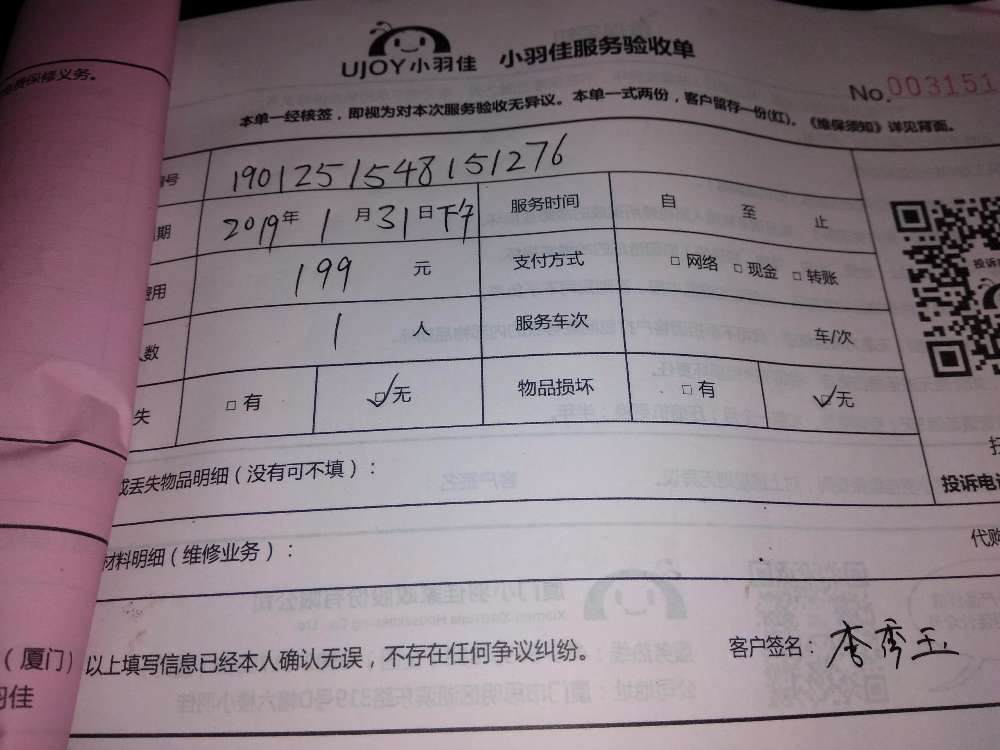 免费保修义务。
UJOY小羽佳 小羽佳服务验收单
No.003151
本单一经核签，即视为对本次服务验收无异议。本单一式两份，客户留存一份(红)。《维保须知》详见背面。
号 1901251548151276
期 2019年1月31日下午 服务时间 自 至 止
费用 199 元 支付方式 □网络 □现金 □转账
人数 1 人 服务车次 车/次
失 □有 ☑无 物品损坏 □有 ☑无
投诉
或丢失物品明细（没有可不填）：
投诉电
材料明细（维修业务）：
代购
（厦门）以上填写信息已经本人确认无误，不存在任何争议纠纷。
客户签名：李秀玉
羽佳